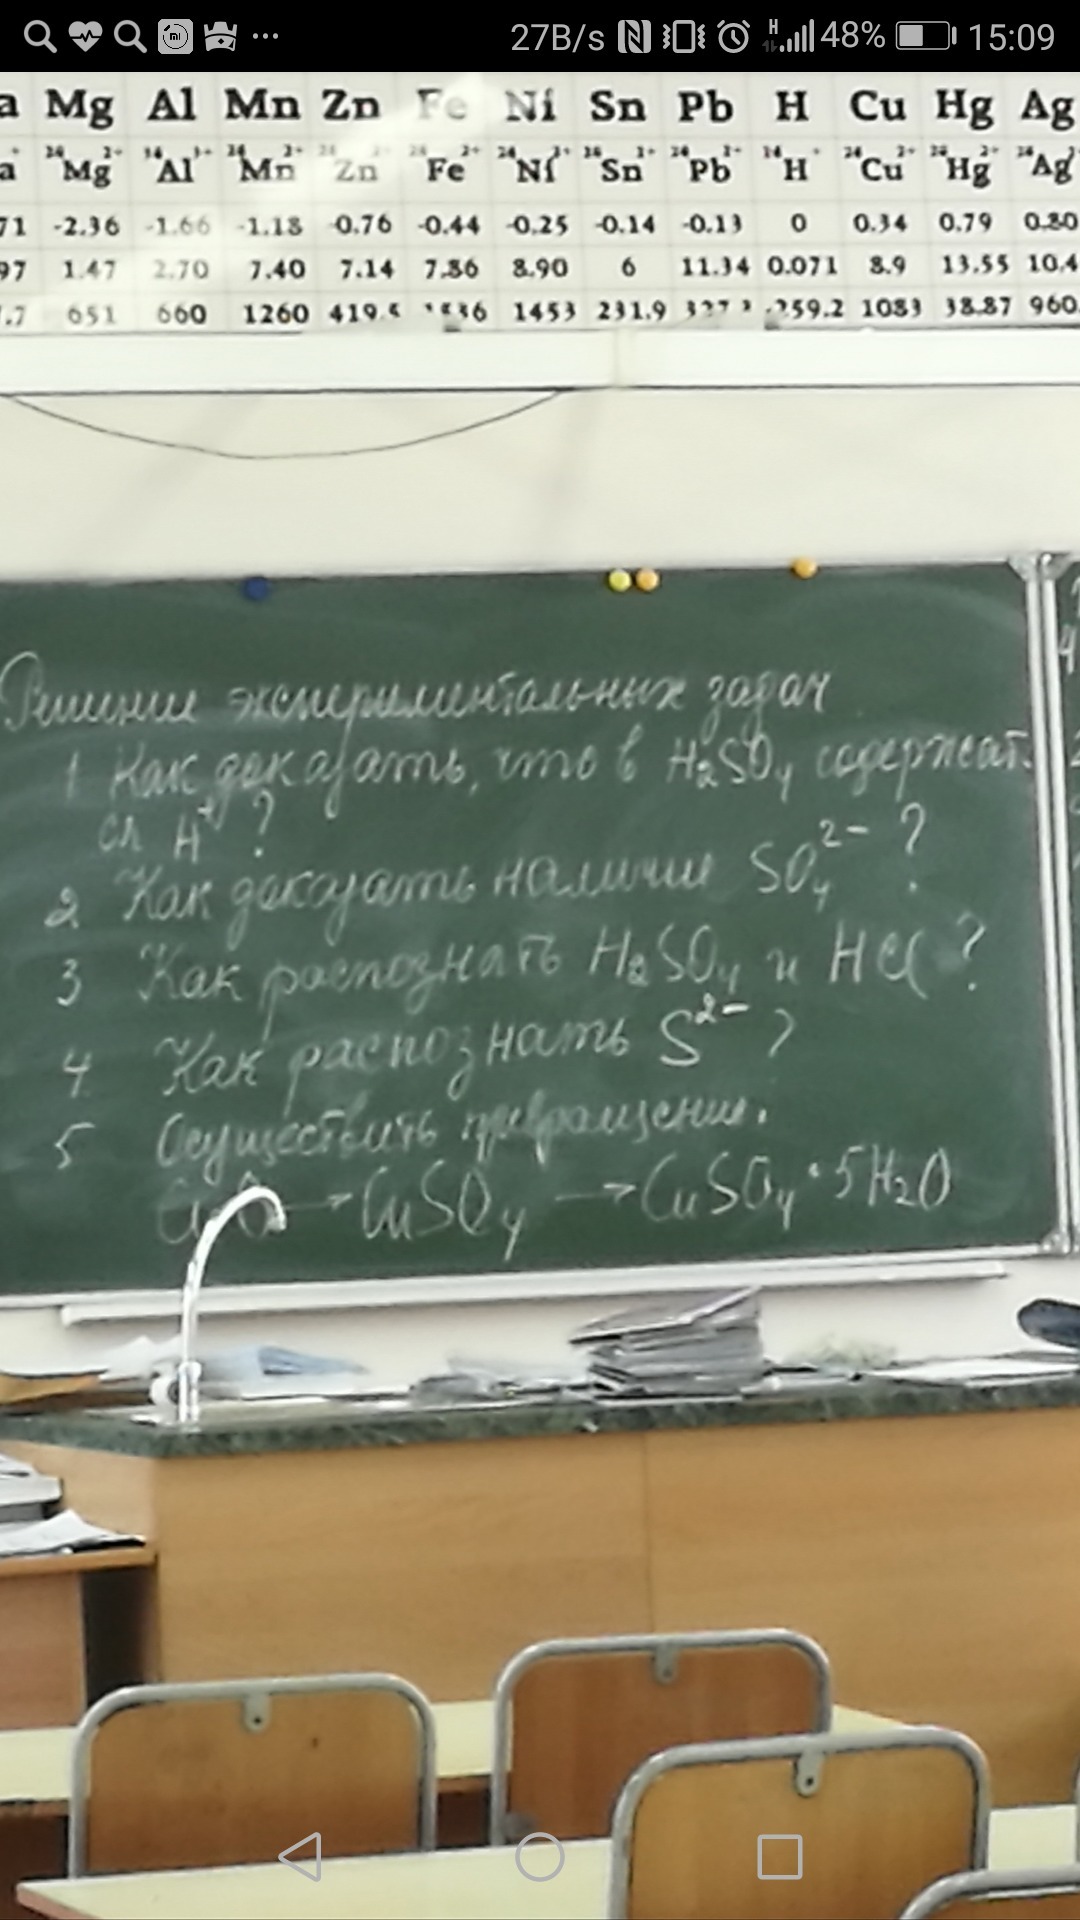 27B/s H 48% 15:09
a Mg Al Mn Zn Fe Ni Sn Pb H Cu Hg Ag
a Mg²⁺ Al³⁺ Mn²⁺ Zn Fe²⁺ Ni Sn Pb H⁺ Cu²⁺ Hg²⁺ Ag
71 -2.36 -1.66 -1.18 -0.76 -0.44 -0.25 -0.14 -0.13 0 0.34 0.79 0.80
97 1.47 2.70 7.40 7.14 7.86 8.90 6 11.34 0.071 8.9 13.55 10.4
.7 651 660 1260 419.5 1536 1453 231.9 -259.2 1083 38.87 960.
Решение экспериментальных задач
1 Как доказать, что в H₂SO₄ содержат.
ся H⁺ ?
2 Как доказать наличие SO₄²⁻ ?
3 Как распознать H₂SO₄ и HCl ?
4 Как распознать S²⁻ ?
5 Осуществить превращение.
→ CuSO₄ → CuSO₄·5H₂O